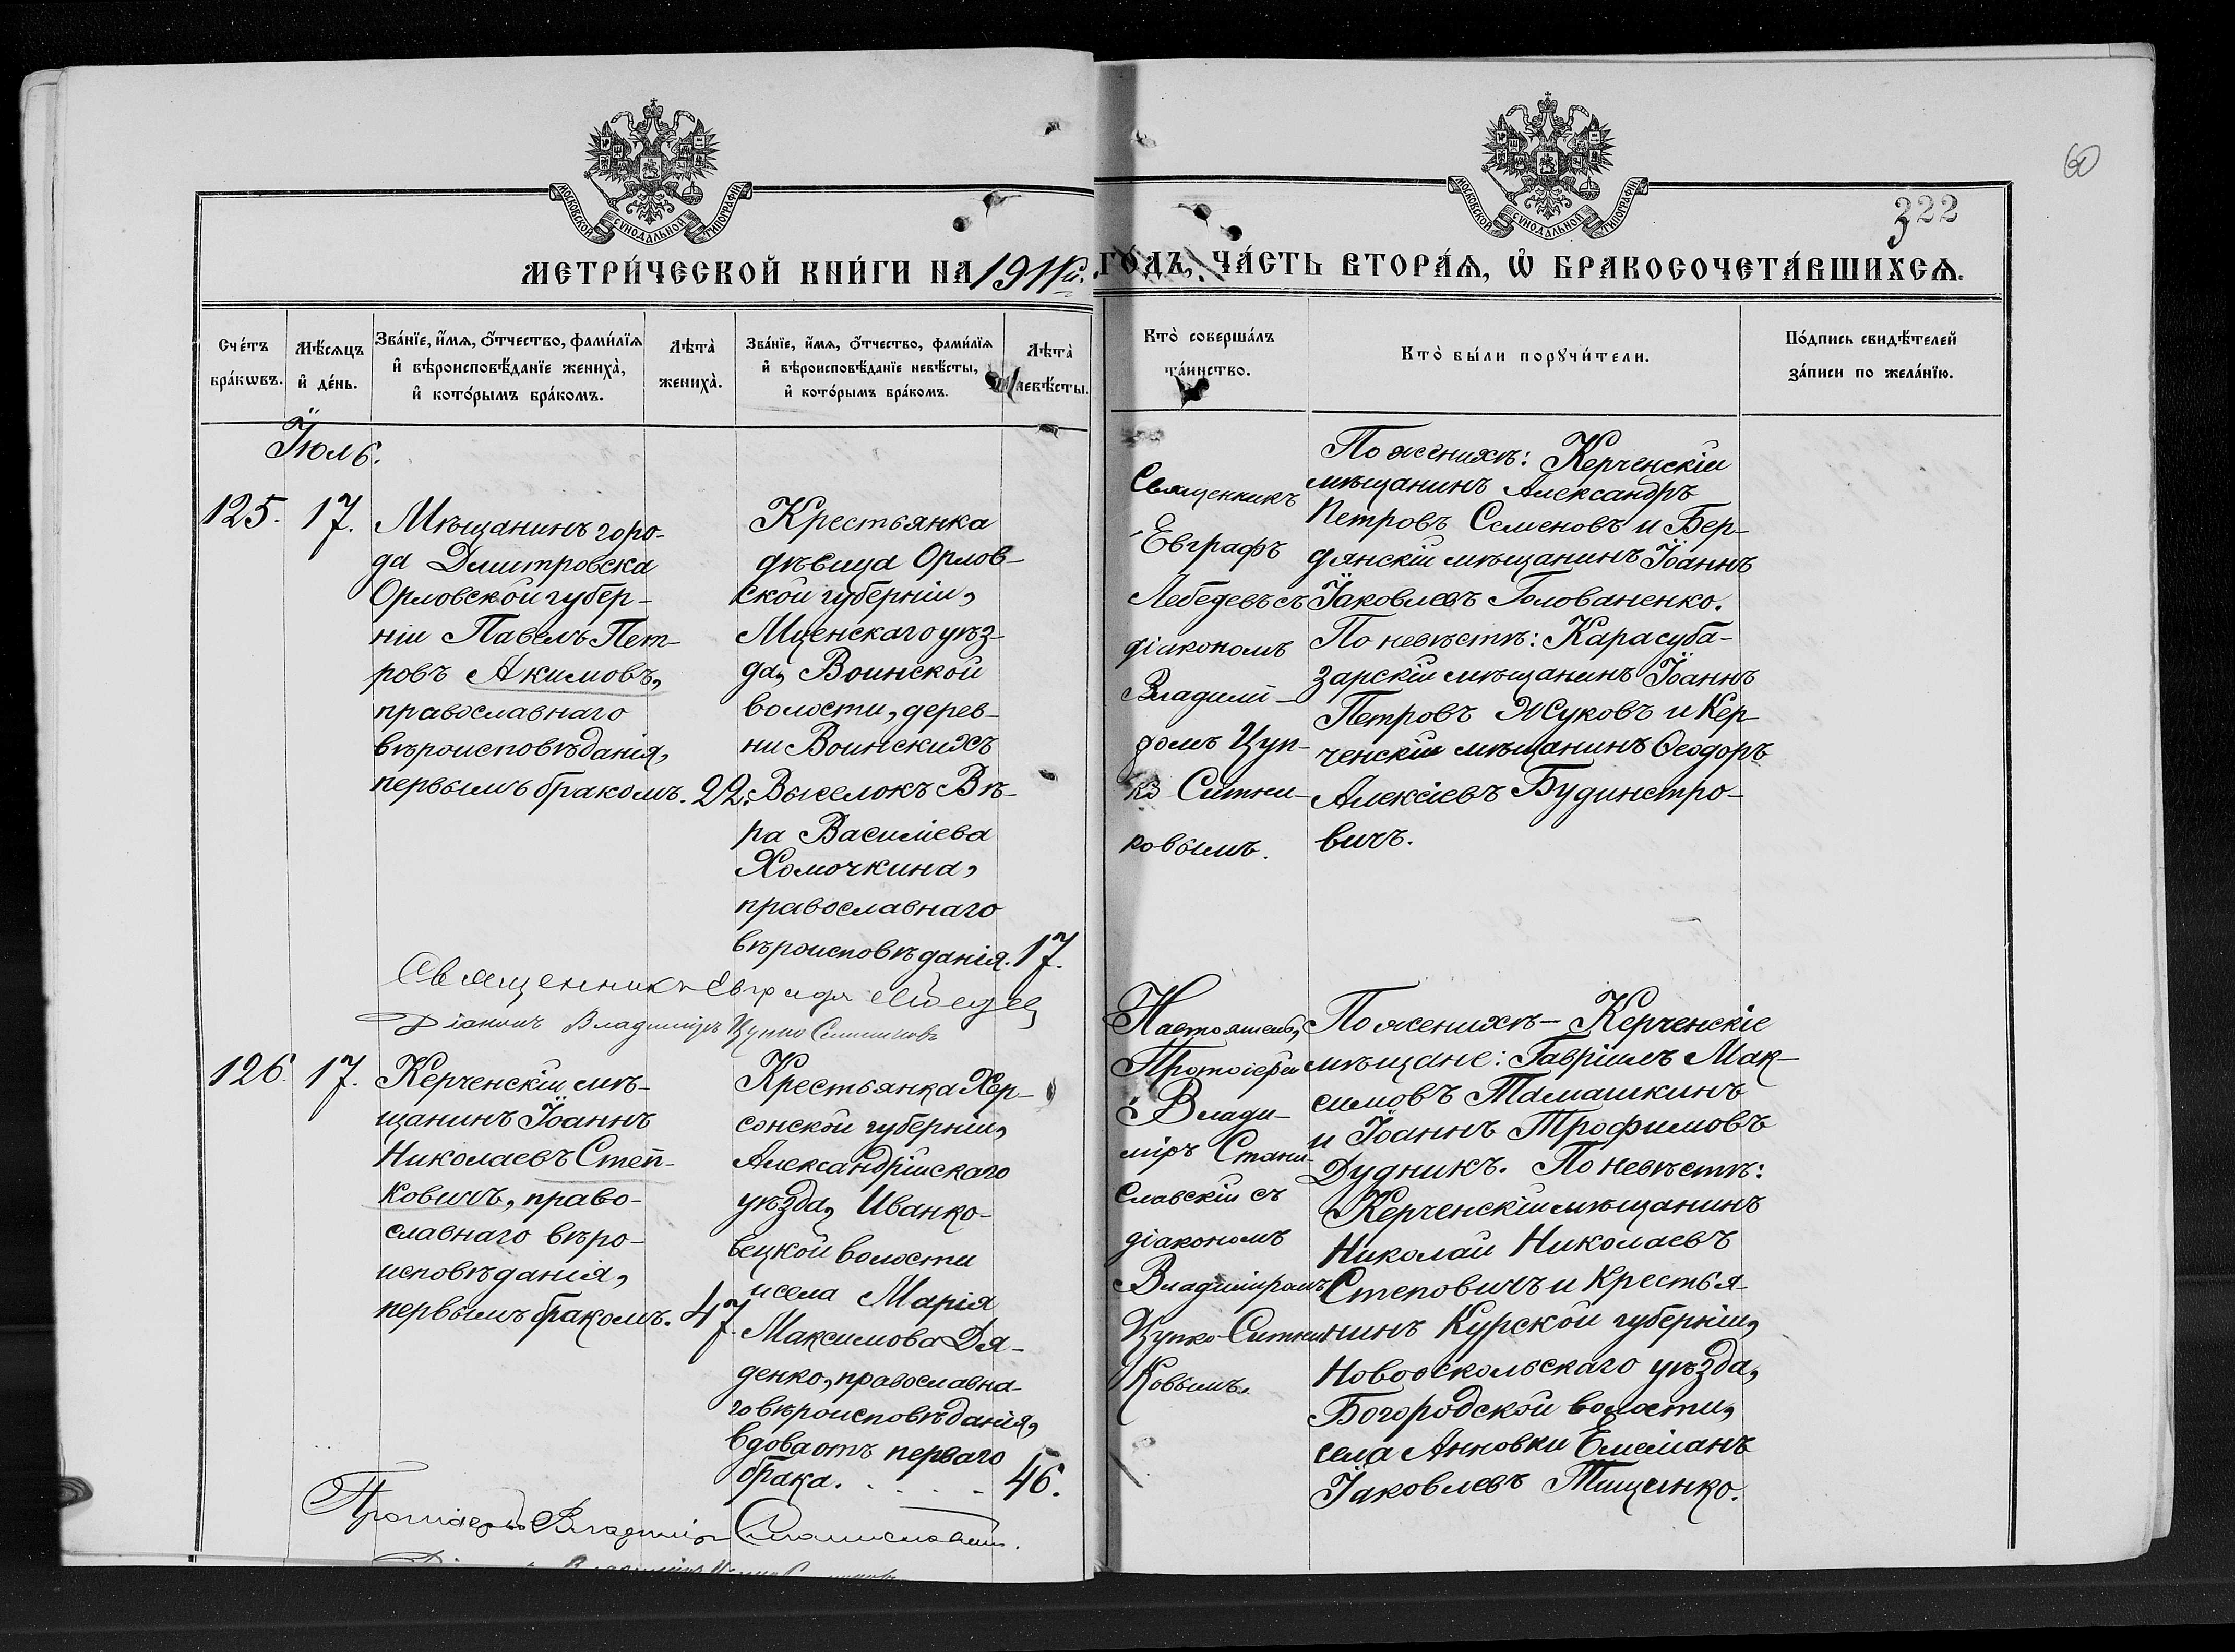 МОСКОВСКОЙ СѴНОДАЛЬНОЙ ТИПОГРАФІИ
МОСКОВСКОЙ СѴНОДАЛЬНОЙ ТИПОГРАФІИ
60
322
МЕТРИ́ЧЕСКОЙ КНИ́ГИ НА 1911й. ГО́ДЪ, ЧА́СТЬ ВТОРА́Ѧ, Ѡ҆ БРАКОСОЧЕТА́ВШИХСѦ.
Сче́тъ бра́кѡвъ.
Мѣ́сяцъ и҆ де́нь.
Зва́нїе, и҆́мѧ, ѻ҆́тчество, фами́лїѧ и҆ вѣроисповѣ́данїе жениха̀, и҆ кото́рымъ бра́комъ.
Лѣта̀ жениха̀.
Зва́нїе, и҆́мѧ, ѻ҆́тчество, фами́лїѧ и҆ вѣроисповѣ́данїе невѣ́сты, и҆ кото́рымъ бра́комъ.
Лѣта̀ невѣ́сты.
Кто̀ соверша́лъ та́инство.
Кто̀ бы́ли порꙋчи́тели.
По́дпись свидѣ́телей за́писи по жела́нїю.
Іюль.
125.
17.
Мѣщанинъ горо-
да Дмитровска
Орловской губер-
ніи Павелъ Пет-
ровъ Акимовъ,
православнаго
вѣроисповѣданія,
первымъ бракомъ.
22.
Крестьянка
дѣвица Орлов-
ской губерніи,
Мценскаго уѣз-
да, Воинской
волости, дерев-
ни Воинскихъ
Выселокъ Вѣ-
ра Василіева
Хомочкина,
православнаго
вѣроисповѣданія.
17.
Священникъ
Евграфъ
Лебедевъ съ
діакономъ
Владимі-
ромъ Цуп-
ко Ситни-
ковымъ.
По женихѣ: Керченскій
мѣщанинъ Александръ
Петровъ Семеновъ и Бер-
дянскій мѣщанинъ Іоаннъ
Іаковлевъ Голованенко.
По невѣстѣ: Карасуба-
зарскій мѣщанинъ Іоаннъ
Петровъ Жуковъ и Кер-
ченскій мѣщанинъ Ѳеодоръ
Алексіевъ Будинстро-
вичъ.
Священникъ Евграфъ
Діаконъ Владиміръ Цупко Ситниковъ
126.
17.
Керченскій мѣ-
щанинъ Іоаннъ
Николаевъ Степ-
ковичъ, право-
славнаго вѣро-
исповѣданія,
первымъ бракомъ.
47.
Крестьянка Хер-
сонской губерніи,
Александрійскаго
уѣзда, Иванко-
вецкой волости
и села Марія
Максимова Дя-
денко, православна-
го вѣроисповѣданія,
вдова отъ перваго
брака.
46.
Настоятель,
Протоіерей
Влади-
міръ Стани-
славскій съ
діакономъ
Владиміромъ
Цупко-Ситни-
ковымъ.
По женихѣ - Керченскіе
мѣщане: Гавріилъ Мак-
симовъ Тамашкинъ
и Іоаннъ Трофимовъ
Дудникъ. По невѣстѣ:
Керченскій мѣщанинъ
Николай Николаевъ
Степовичъ и крестья-
нинъ Курской губерніи,
Новооскольскаго уѣзда,
Богородской волости,
села Анновки Емеліанъ
Іаковлевъ Тищенко.
Протоіерей Владиміръ Станиславскій.